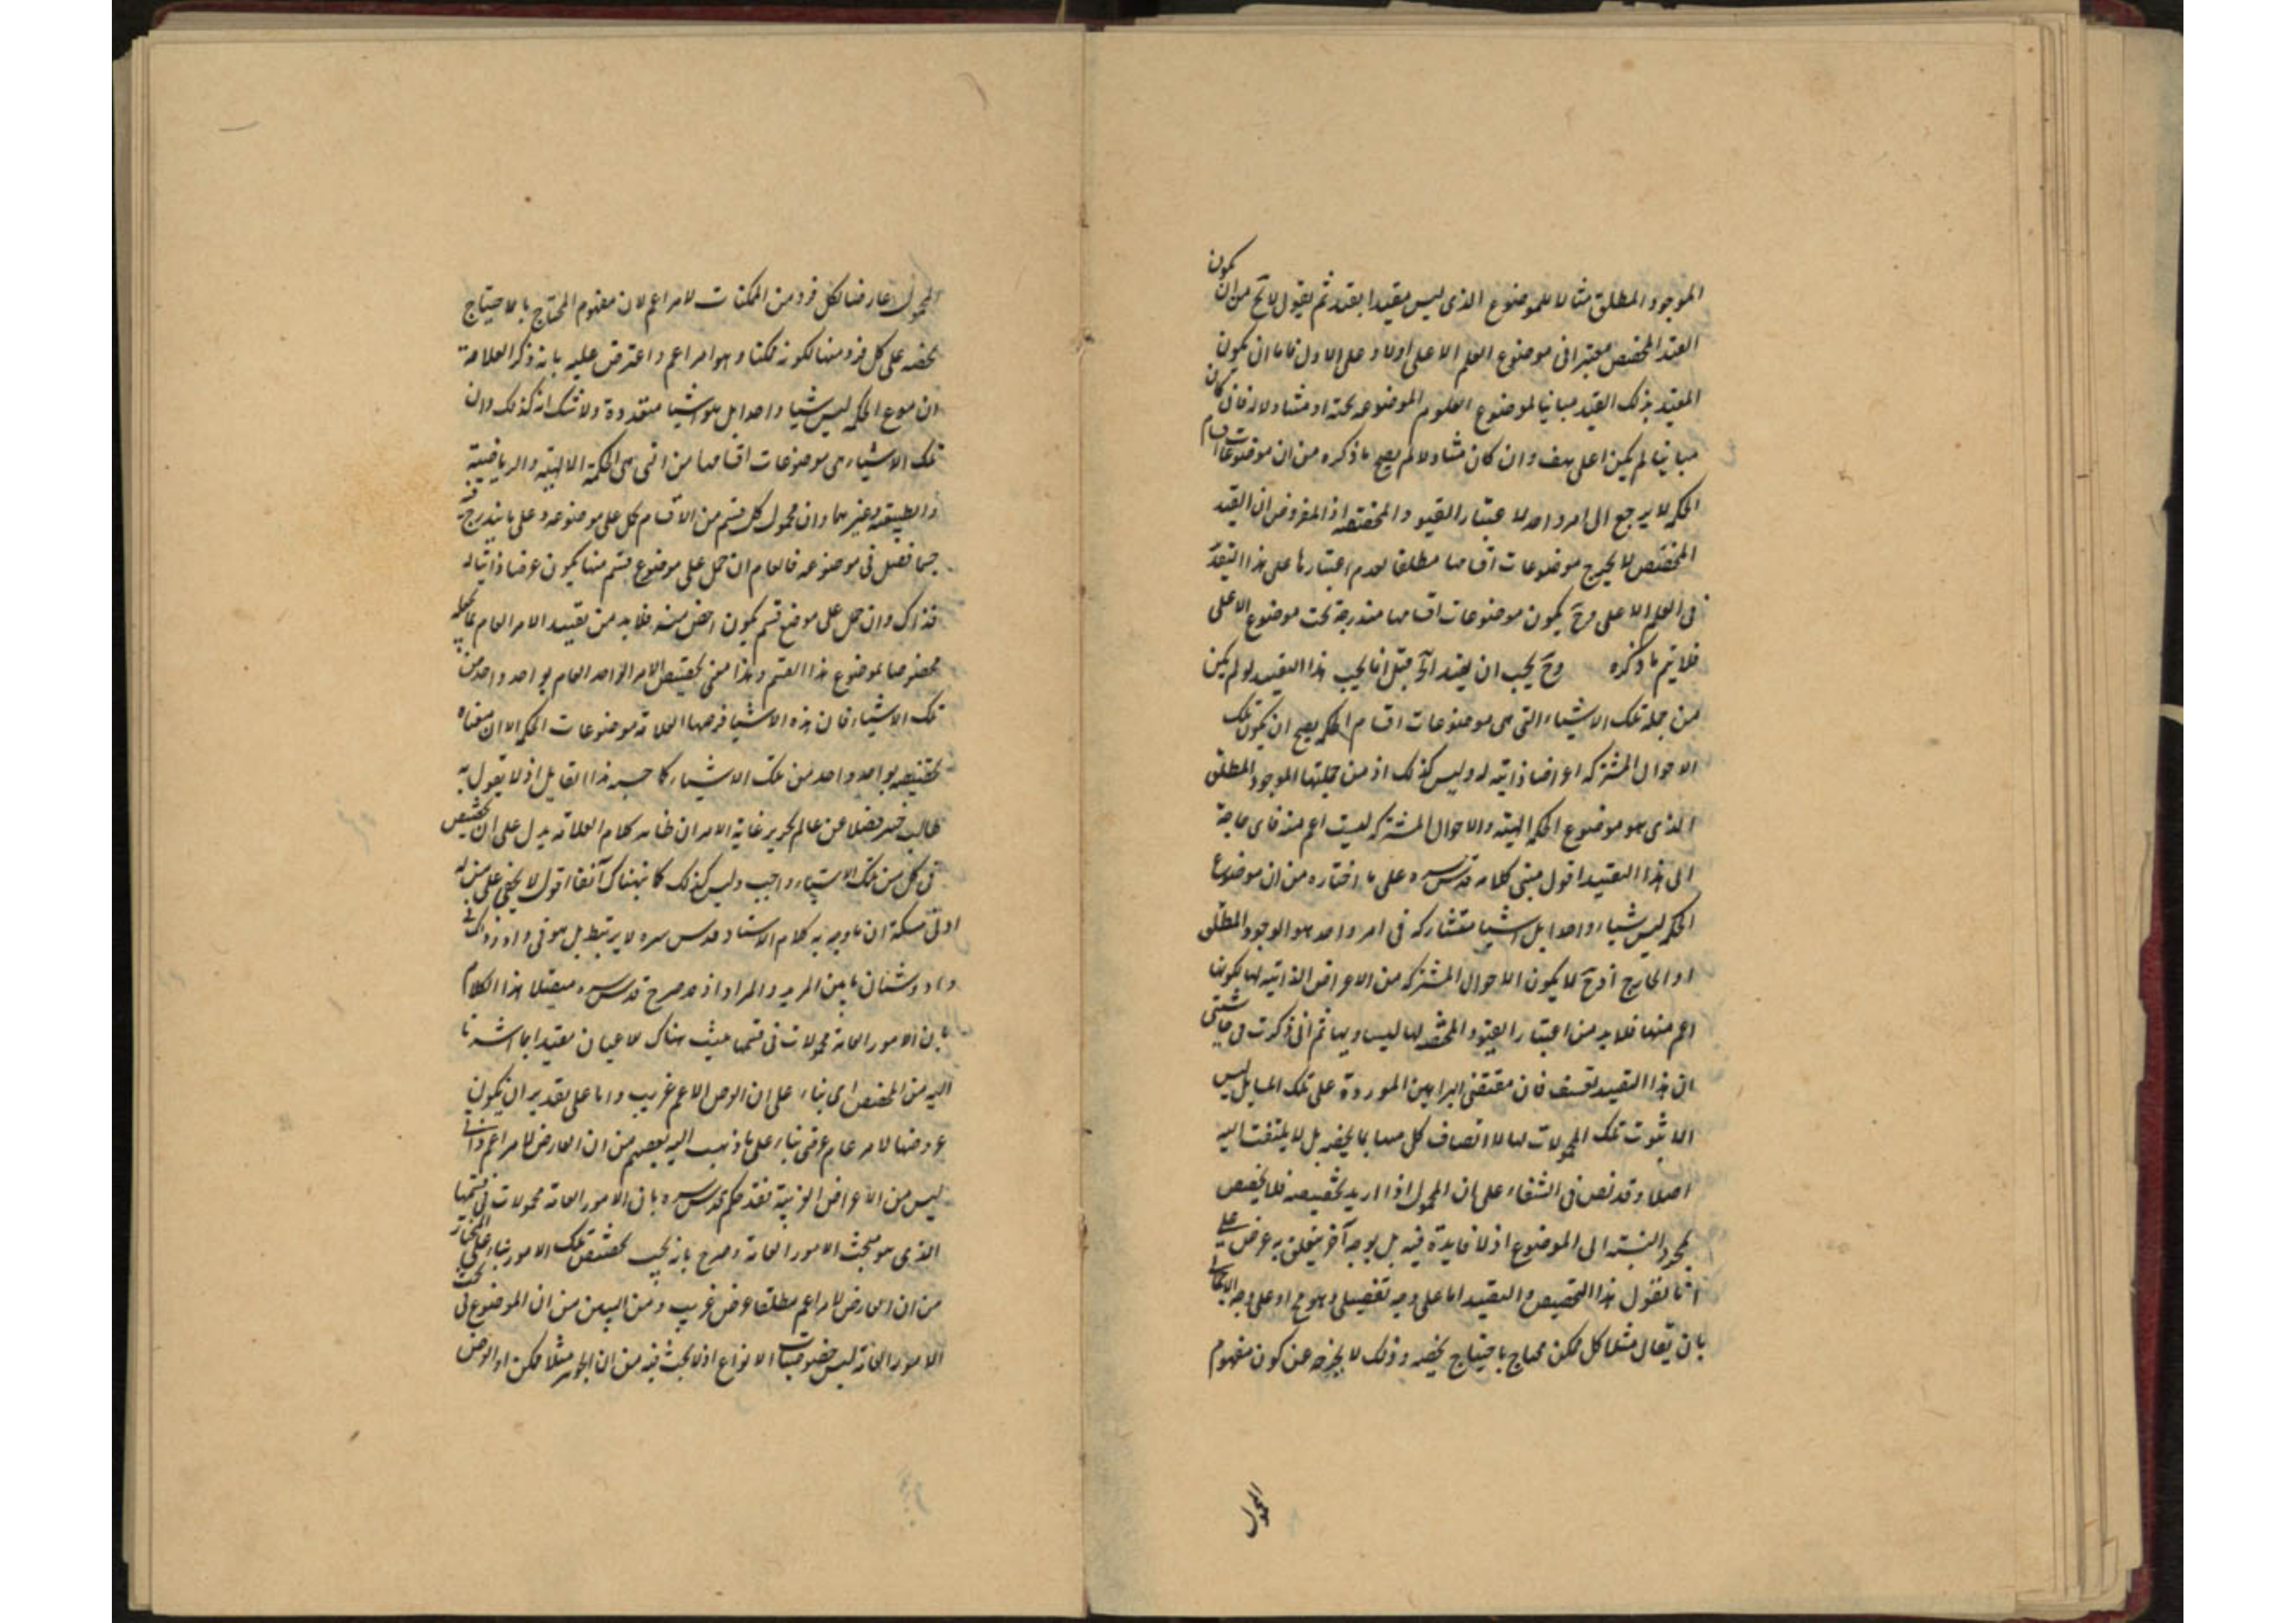 الموجود المطلق مثالا للموضوع الذى ليس مقيدا بقيد ثم يقول لا يخ من ان يكون
القيد المخصص معتبرا فى موضوع العلم الاعلى اولا و على الاول فاما ان يكون
المقيد بذلك القيد مباينا لموضوع العلوم الموضوعه تحته او مشاولا له فان كان
مباينا لم يكن اعلى هف وان كان مشاولا لم يصح ما ذكره من ان موضوعات اقسام
الحكمه لا يرجع الى امر واحد لاعتبار القيود المخصصه اذ المفروض ان القيد
المخصص لا يخرج موضوعات اقسامها مطلقا لعدم اعتبارها على هذا التقدير
فى العلم الاعلى وح يكون موضوعات اقسامها مندرجة تحت موضوع الاعلى
فلا يتم ما ذكره وح يجب ان يقيد الخ قيل انما يجب هذا التقييد لو لم يكن
من جملة تلك الاشياء التى هى موضوعات اقسام الحكمه يصح ان يكون تلك
الاحوال المشتركه اعراضا ذاتيه له وليس كذلك اذ من جملتها الموجود المطلق
الذى هو موضوع الحكمه الهيته والاحوال المشتركه ليست اعم منه فاى حاجة
الى هذا التقييد اقول مبنى كلامه قدس سره على ما اختاره من ان موضوع
الحكمه ليس شياء واحدا بل اشيا متشاركه فى امر واحد هو الوجود المطلق
او الخارجى اذ ح لا يكون الاحوال المشتركه من الاعراض الذاتيه لها لكونها
اعم منها فلا بد من اعتبار القيود المخصصه لها ليساويها ثم انى ذكرت فى حاشيتى
ان هذا التقييد تعسف فان مقتضى البراهين الموردة على تلك المسايل ليس
الا ثبوت تلك المحمولات لها لا اتصاف كل منها بما يخصه بل لا يلتفت اليه
اصلا وقد نص فى الشفاء على ان المحمول اذا اريد تخصيصه فلا يخصص
بمجرد النسبة الى الموضوع اذ لا فايدة فيه بل بوجه آخر يتعلق به غرض على
انا نقول هذا التخصيص والتقييد اما على وجه تفصيلى وهو مح او على وجه الاجمال
بان يقال مثلا كل ممكن محتاج باحتياج يخصه وذلك لا يخرجه عن كون مفهوم
المحمول
المحمول عارضا لكل فرد من الممكنات لامر اعم لان مفهوم المحتاج بالاحتياج
يخصه على كل فرد منها لكونه ممكنا وهو امر اعم واعترض عليه بانه ذكر العلامة
ان موع الحكمه ليس شيا واحدا بل هو اشيا متعددة ولا شك انه كذلك وان
تلك الاشياء هى موضوعات اقسامها من التى هى الحكمة الالهيته والرياضيته
والطبيعيه وغيرهما وان محمول كل قسم من الاقسام يحمل على موضوعه وعلى ما يندرج فيه
حسبما فصل فى موضوعه فالعام ان حمل على موضوع قسم منها يكون عرضا ذاتيا له
فذاك وان حمل على موضع قسم يكون اخص منه فلا بد من تقييد الامر العام بما يجعله
مخصوصا بموضوع هذا القسم وهذا معنى تخصيص الامر الواحد العام بواحد واحد من
تلك الاشياء فان هذه الاشيا فرضها العلامة موضوعات الحكمه لا ان معناه
تخصيصه بواحد واحد من تلك الاشياء كما حسبه هذا القايل اذ لا يقول به
طالب فضلا عن عالم نحرير غاية الامر ان ظاهر كلام العلامة يدل على ان تخصيص
فى كل من تلك الاشياء واجب وليس كذلك كما نبهناك آنفا اقول لا يخفى على من له
ادنى مسكة ان ما وجه به كلام الاستاد قدس سره لا يرتبط بل هو فى واد و ذلك فى
واد وشتان ما بين المريد والمراد اذ قد صرح قدس سره متصلا هذا الكلام
بان الامور العامه محمولات فى قسمها حيث هناك للاعيان مقيدا بما اشرنا
اليه من المخصص اى بناء على ان العرض الاعم غريب واما على تقدير ان يكون
عروضها لامر عام عرضى بناء على ما ذهب اليه بعضهم من ان العارض لامر اعم ذاتى
ليس من الاعراض الغريبة فقد حكم قدس سره بان الامور العامة محمولات فى قسمها
الذى هو مبحث الامور العامة وصرح بانه يجب تخصيص تلك الامور بناء على المختار
من ان العارض لامر اعم مطلقا عرض غريب ومن البين من ان الموضوع فى بحث
الامور العامة ليس خصوصيات الانواع اذ لا بحث فيه من ان الجوهر مثلا ممكن او العرض